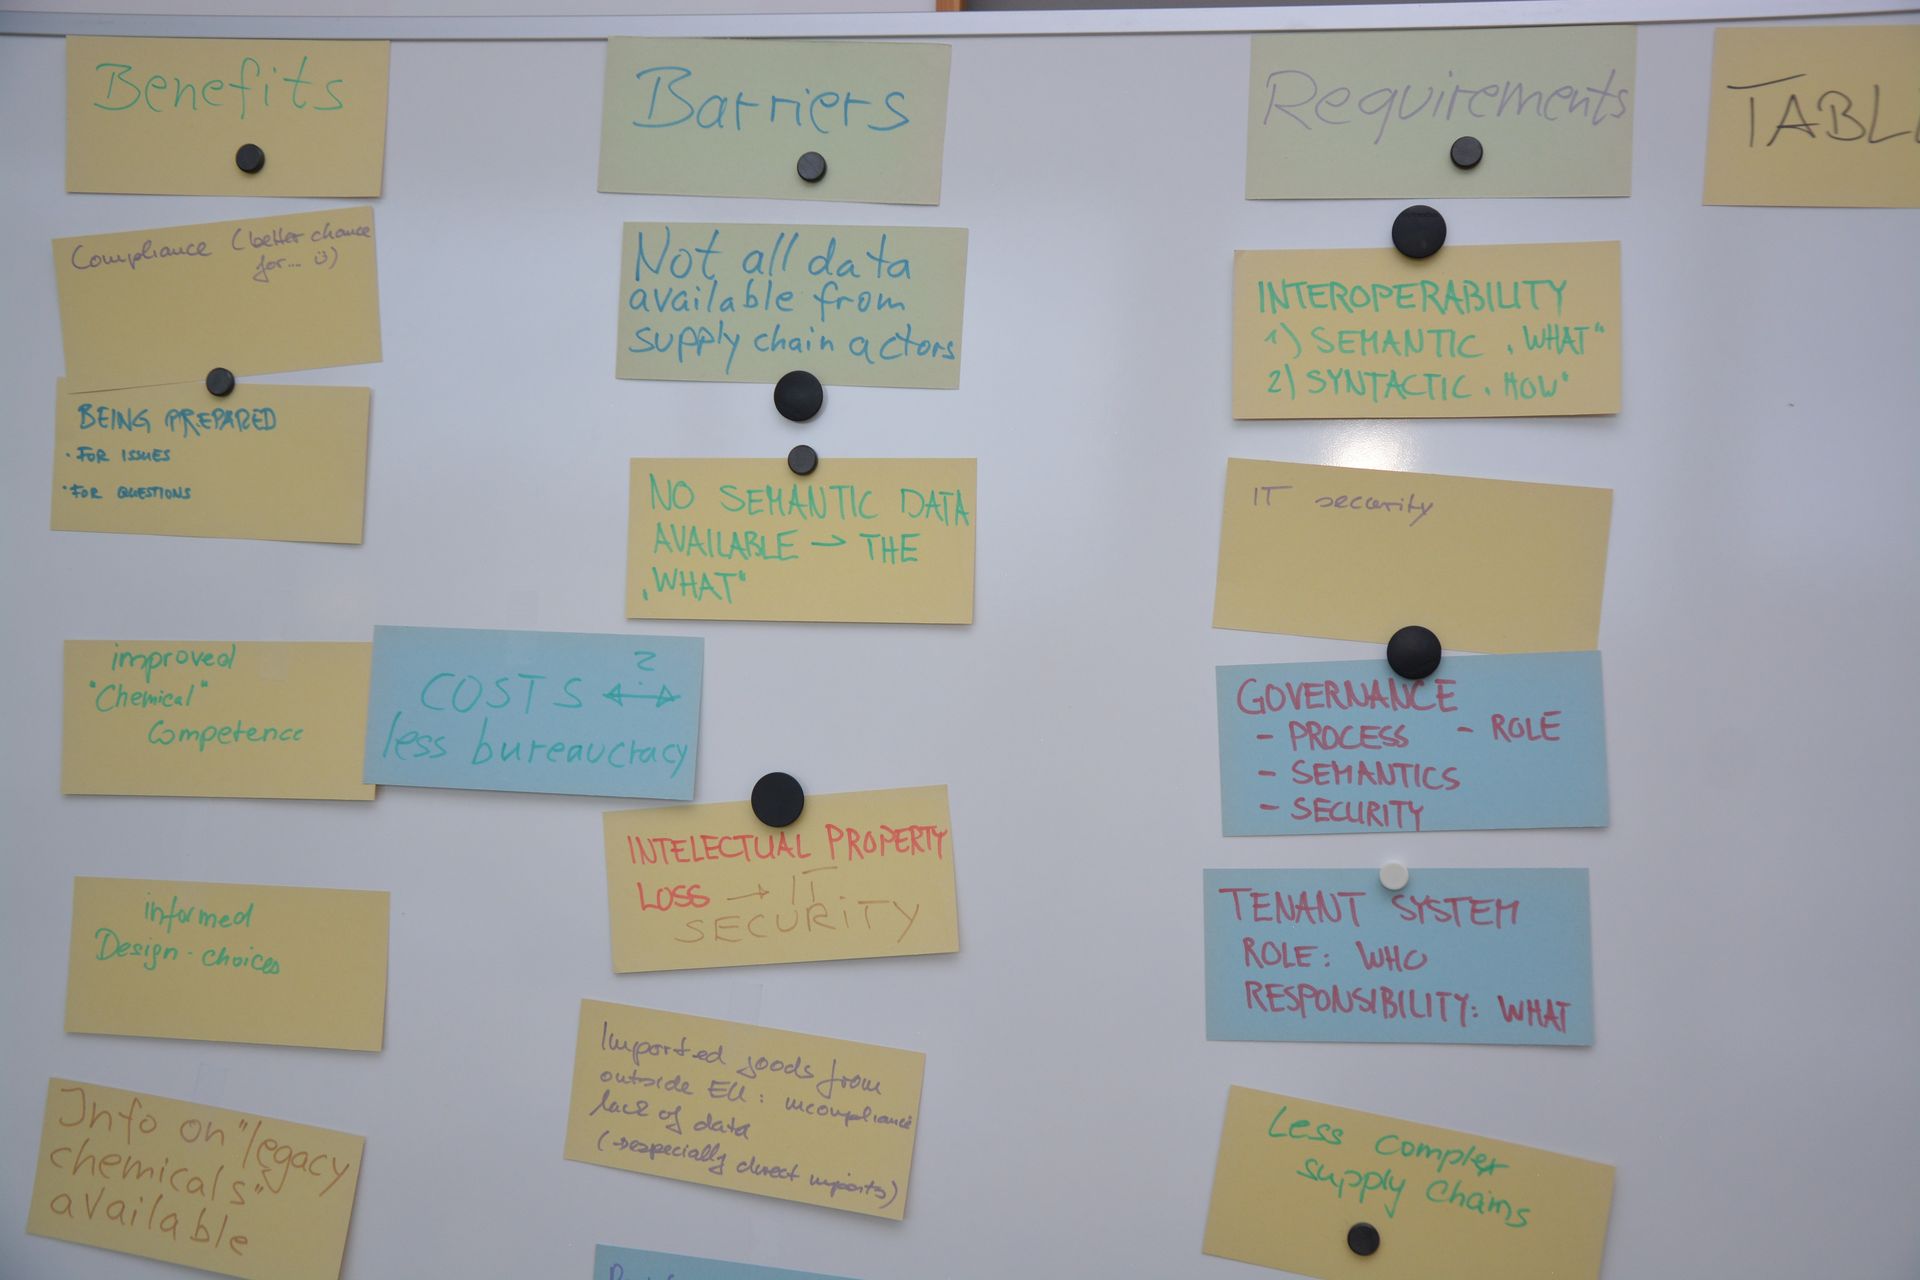 Benefits
Compliance (better chance
for... ü)
BEING PREPARED
· FOR ISSUES
· FOR QUESTIONS
improved
"Chemical"
Competence
informed
Design-choices
Info on "legacy
chemicals"
available
?
COSTS ↔
less bureaucracy
Barriers
Not all data
available from
supply chain actors
NO SEMANTIC DATA
AVAILABLE → THE
„WHAT“
INTELECTUAL PROPERTY
LOSS → IT
SECURITY
Imported goods from
outside EU: incompliance
lack of data
(→ especially direct imports)
Requirements
INTEROPERABILITY
1) SEMANTIC „WHAT“
2) SYNTACTIC „HOW“
IT security
GOVERNANCE
- PROCESS - ROLE
- SEMANTICS
- SECURITY
TENANT SYSTEM
ROLE: WHO
RESPONSIBILITY: WHAT
Less complex
supply chains
TABL